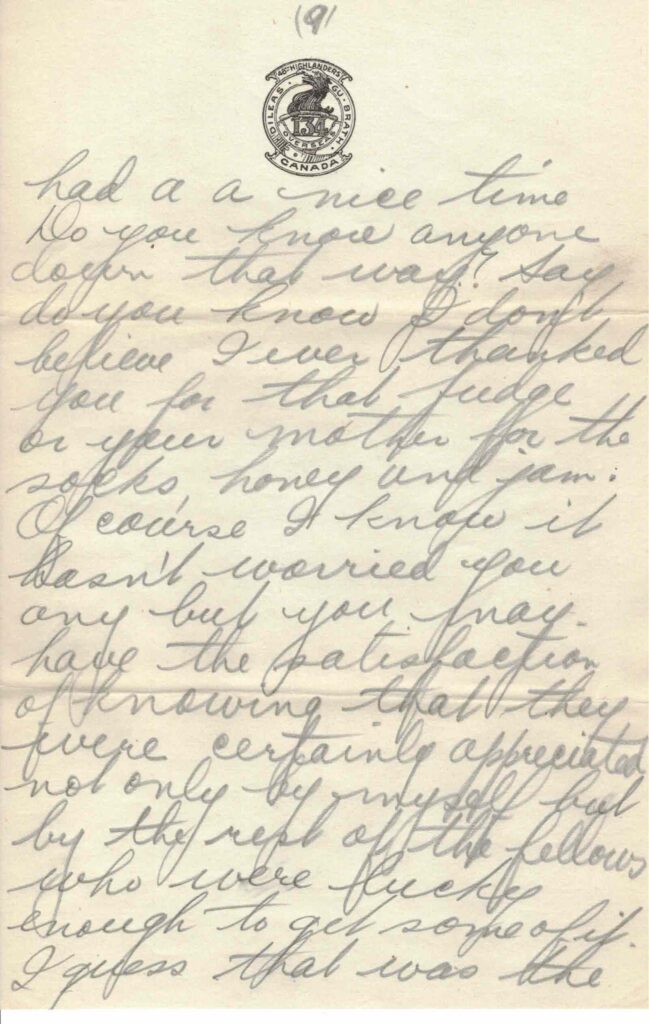 (9)
48TH HIGHLANDERS
DILEAS GU BRATH
134
OVERSEAS
CANADA
had a a nice time
Do you know anyone
down that way? Say
do you know I don't
believe I ever thanked
you for that fudge
or your mother for the
socks, honey and jam.
Of course I know it
hasn't worried you
any but you may
have the satisfaction
of knowing that they
were certainly appreciated
not only by myself but
by the rest of the fellows
who were lucky
enough to get some of it.
I guess that was the